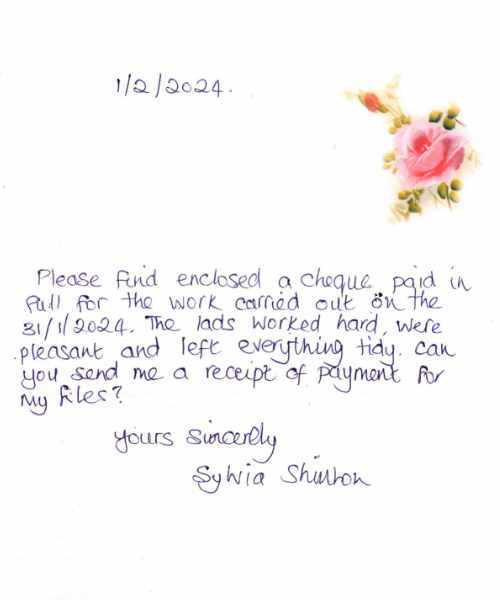 1/2/2024.
Please find enclosed a cheque paid in
full for the work carried out on the
31/1/2024. The lads worked hard, were
pleasant and left everything tidy. Can
you send me a receipt of payment for
my files?
yours sincerely
Sylvia